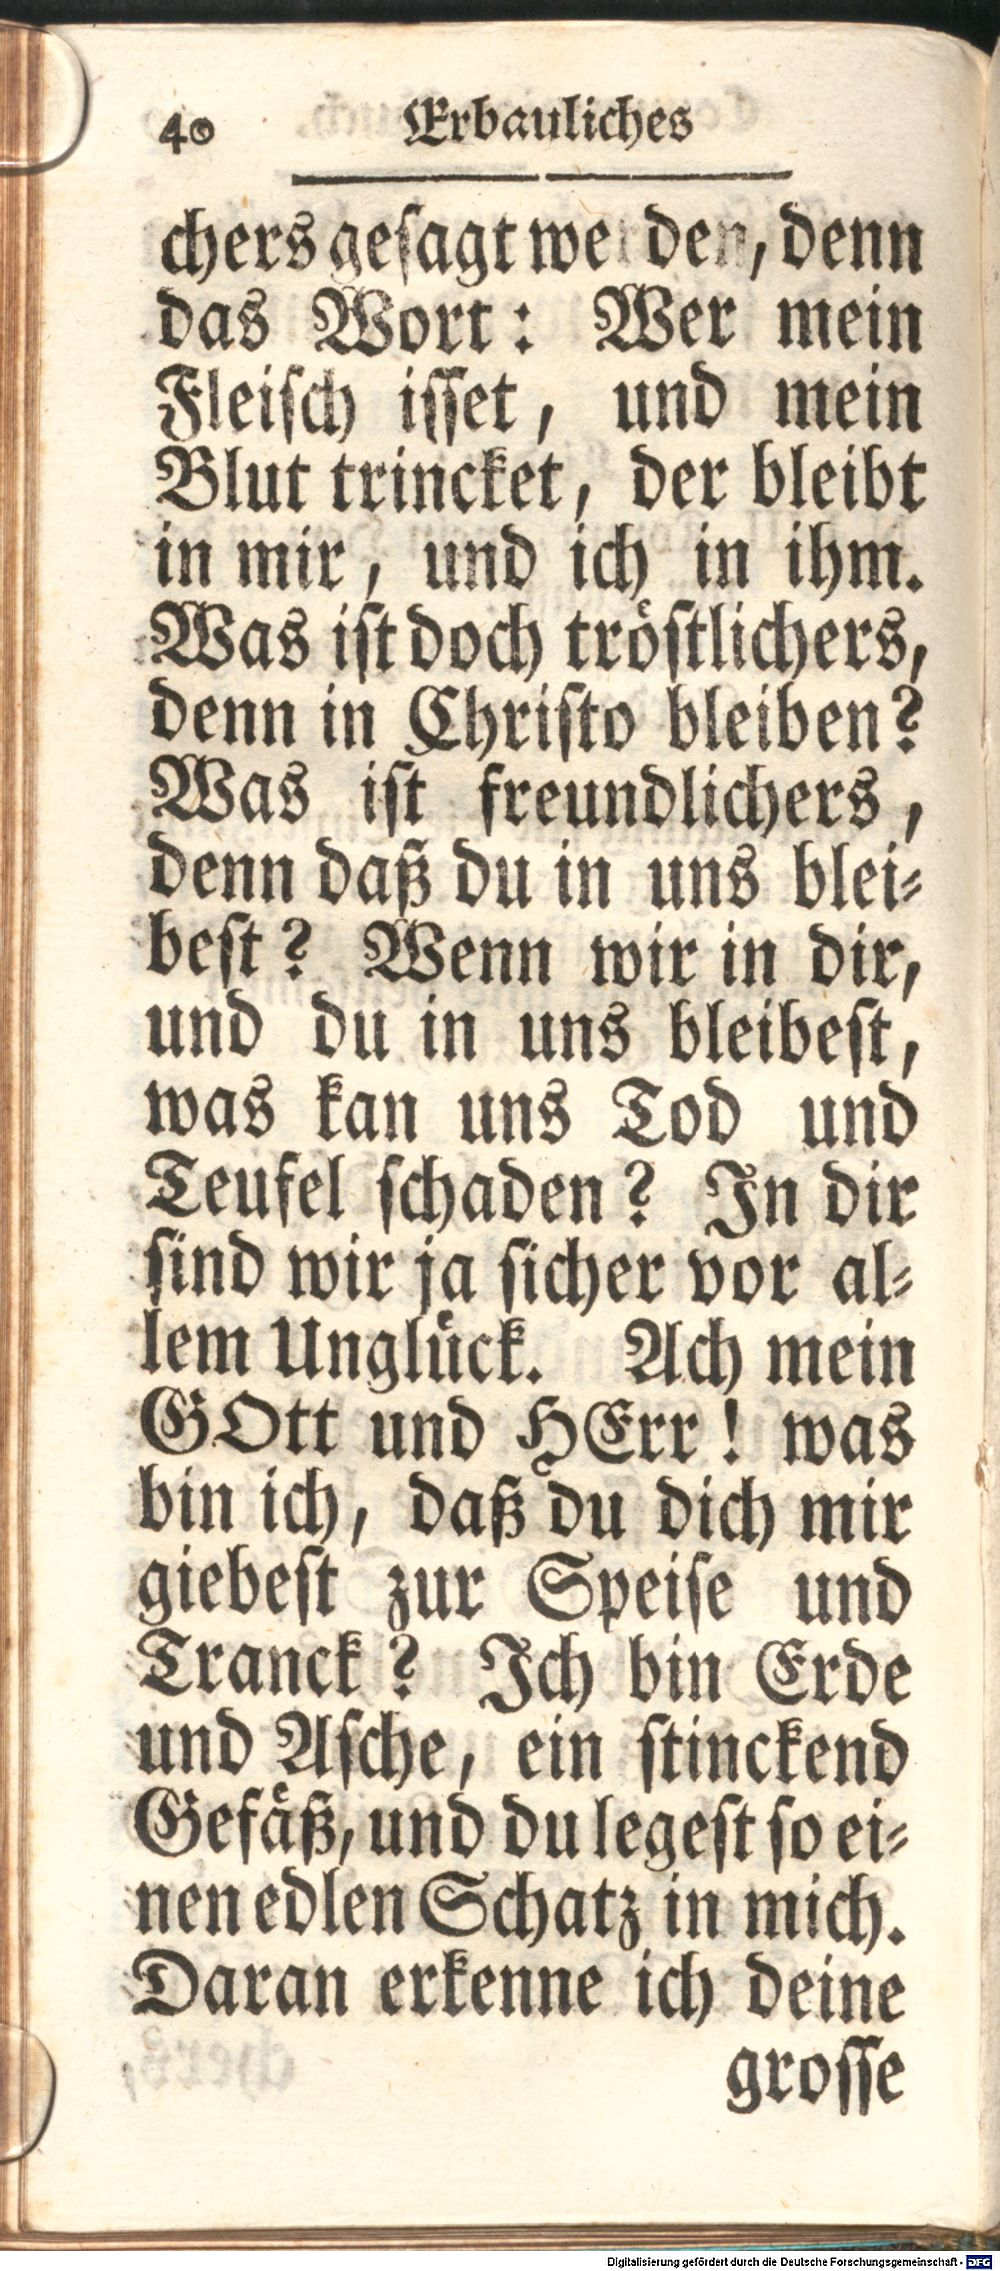 40 Erbauliches
chers geſagt werden, denn
das Wort: Wer mein
Fleiſch iſſet, und mein
Blut trincket, der bleibt
in mir, und ich in ihm.
Was iſt doch tröſtlichers,
denn in Chriſto bleiben?
Was iſt freundlichers,
denn daß du in uns blei⸗
beſt? Wenn wir in dir,
und du in uns bleibeſt,
was kan uns Tod und
Teufel ſchaden? In dir
ſind wir ja ſicher vor al⸗
lem Unglück. Ach mein
GOtt und HErr! was
bin ich, daß du dich mir
giebeſt zur Speiſe und
Tranck? Ich bin Erde
und Aſche, ein ſtinckend
Gefäß, und du legeſt ſo ei⸗
nen edlen Schatz in mich.
Daran erkenne ich deine
groſſe
Digitalisierung gefördert durch die Deutsche Forschungsgemeinschaft - DFG